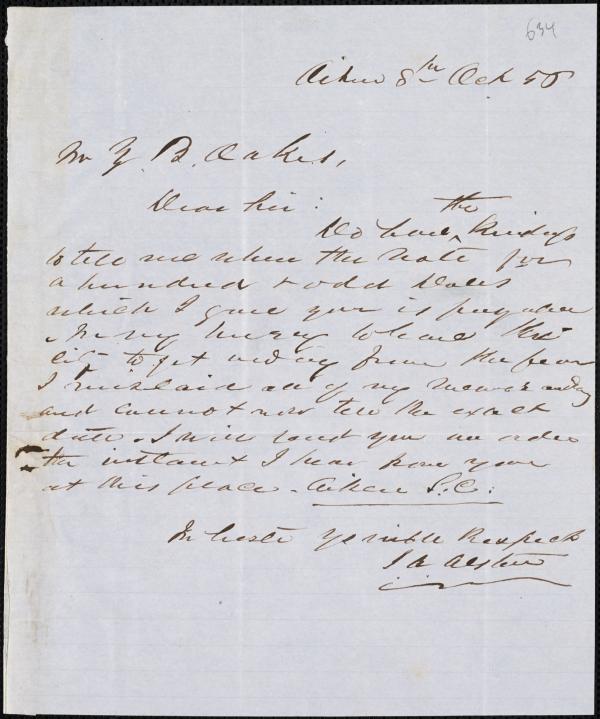 634
Aiken 8th Oct 56
Mr Z. B. Oakes,
Dear Sir:
Do have the kindness
to tell me when the note for
a hundred & odd Dolls
which I gave you is payable
In my hurry to leave the
city to get away from the fever
I mislaid all of my memoranda
and cannot now tell the exact
date. I will send you an order
the instant I hear from you
at this place. Aiken S. C.
In haste Yrs with Respect